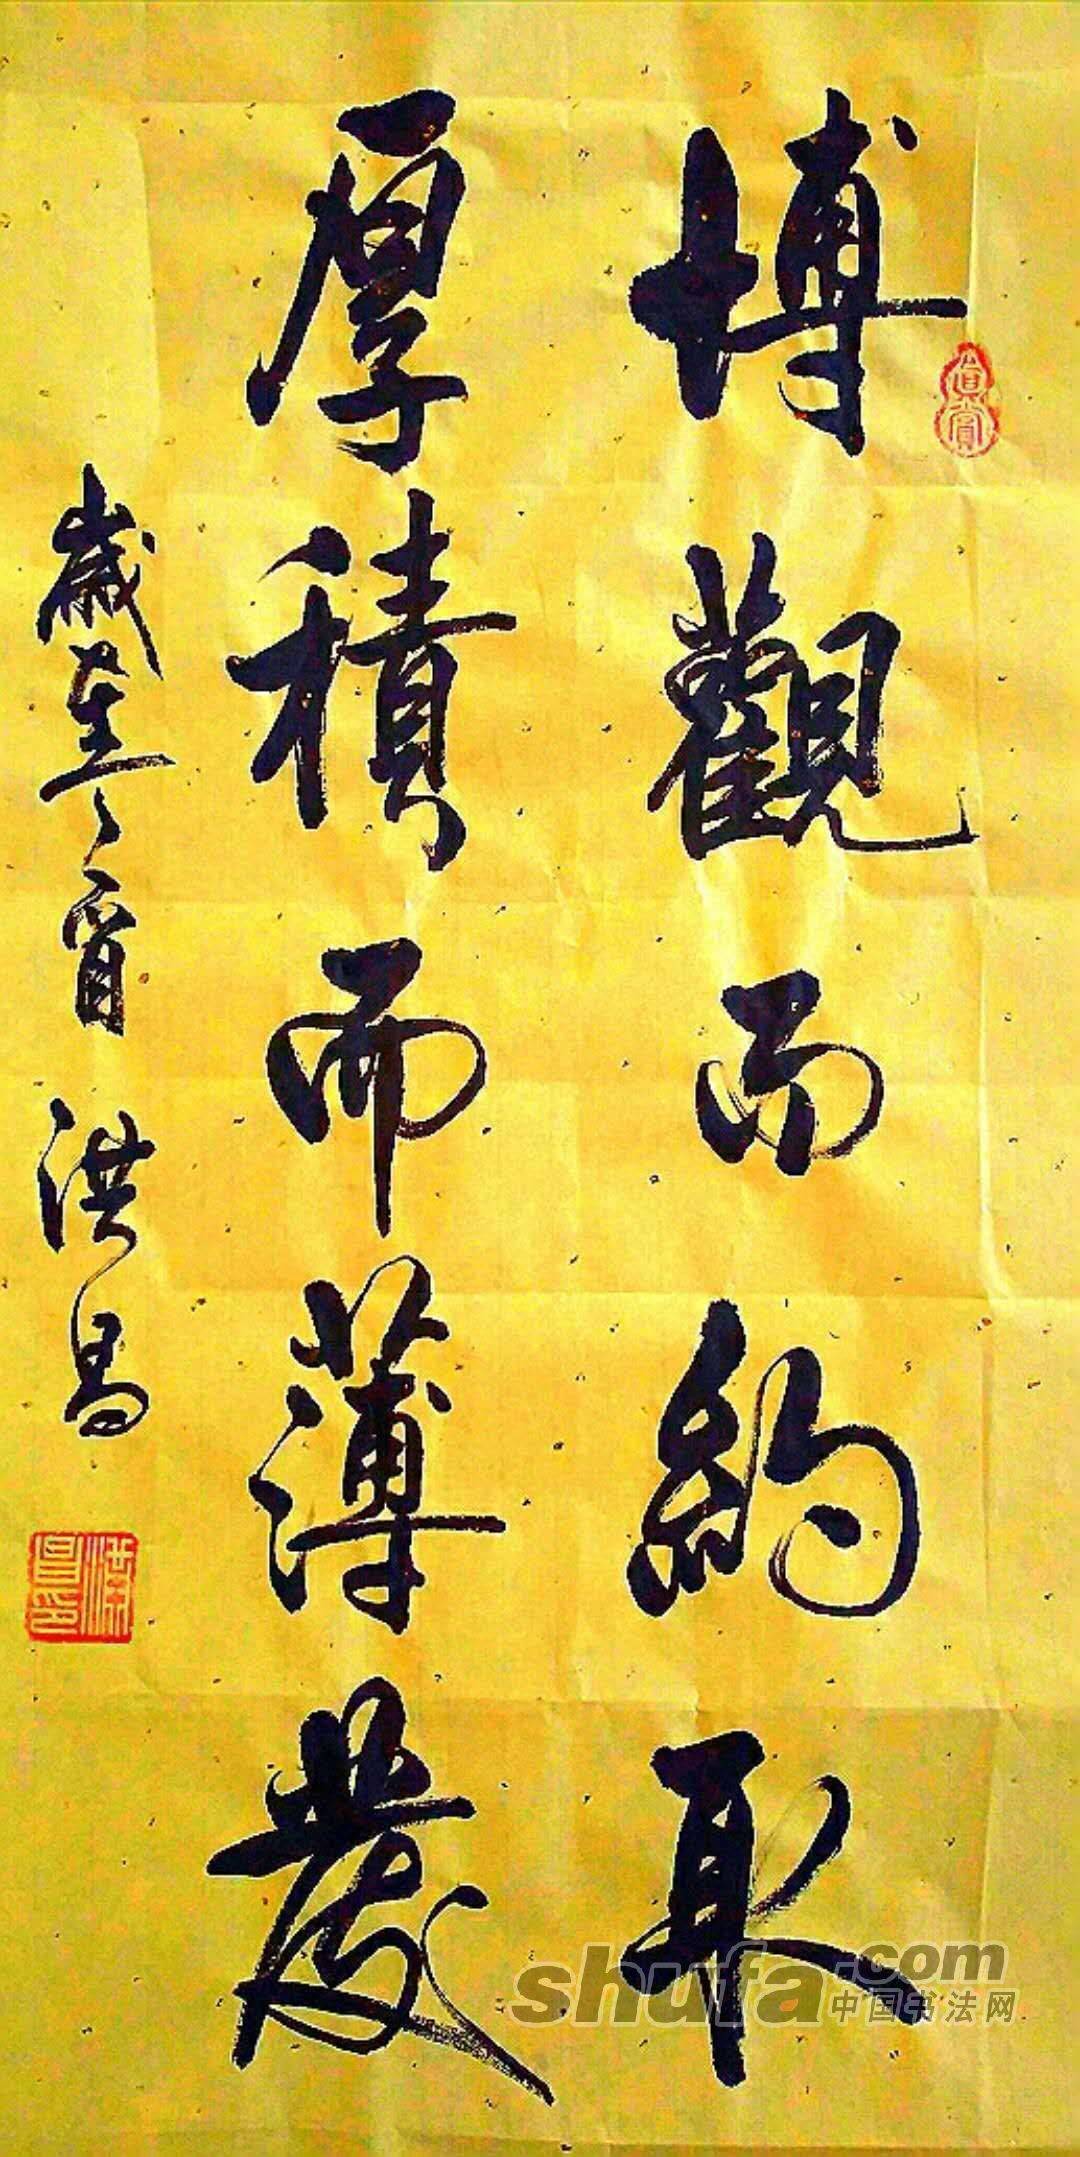 博觀而約取
厚積而薄發
洪昌
真賞
shufa.com
中国书法网